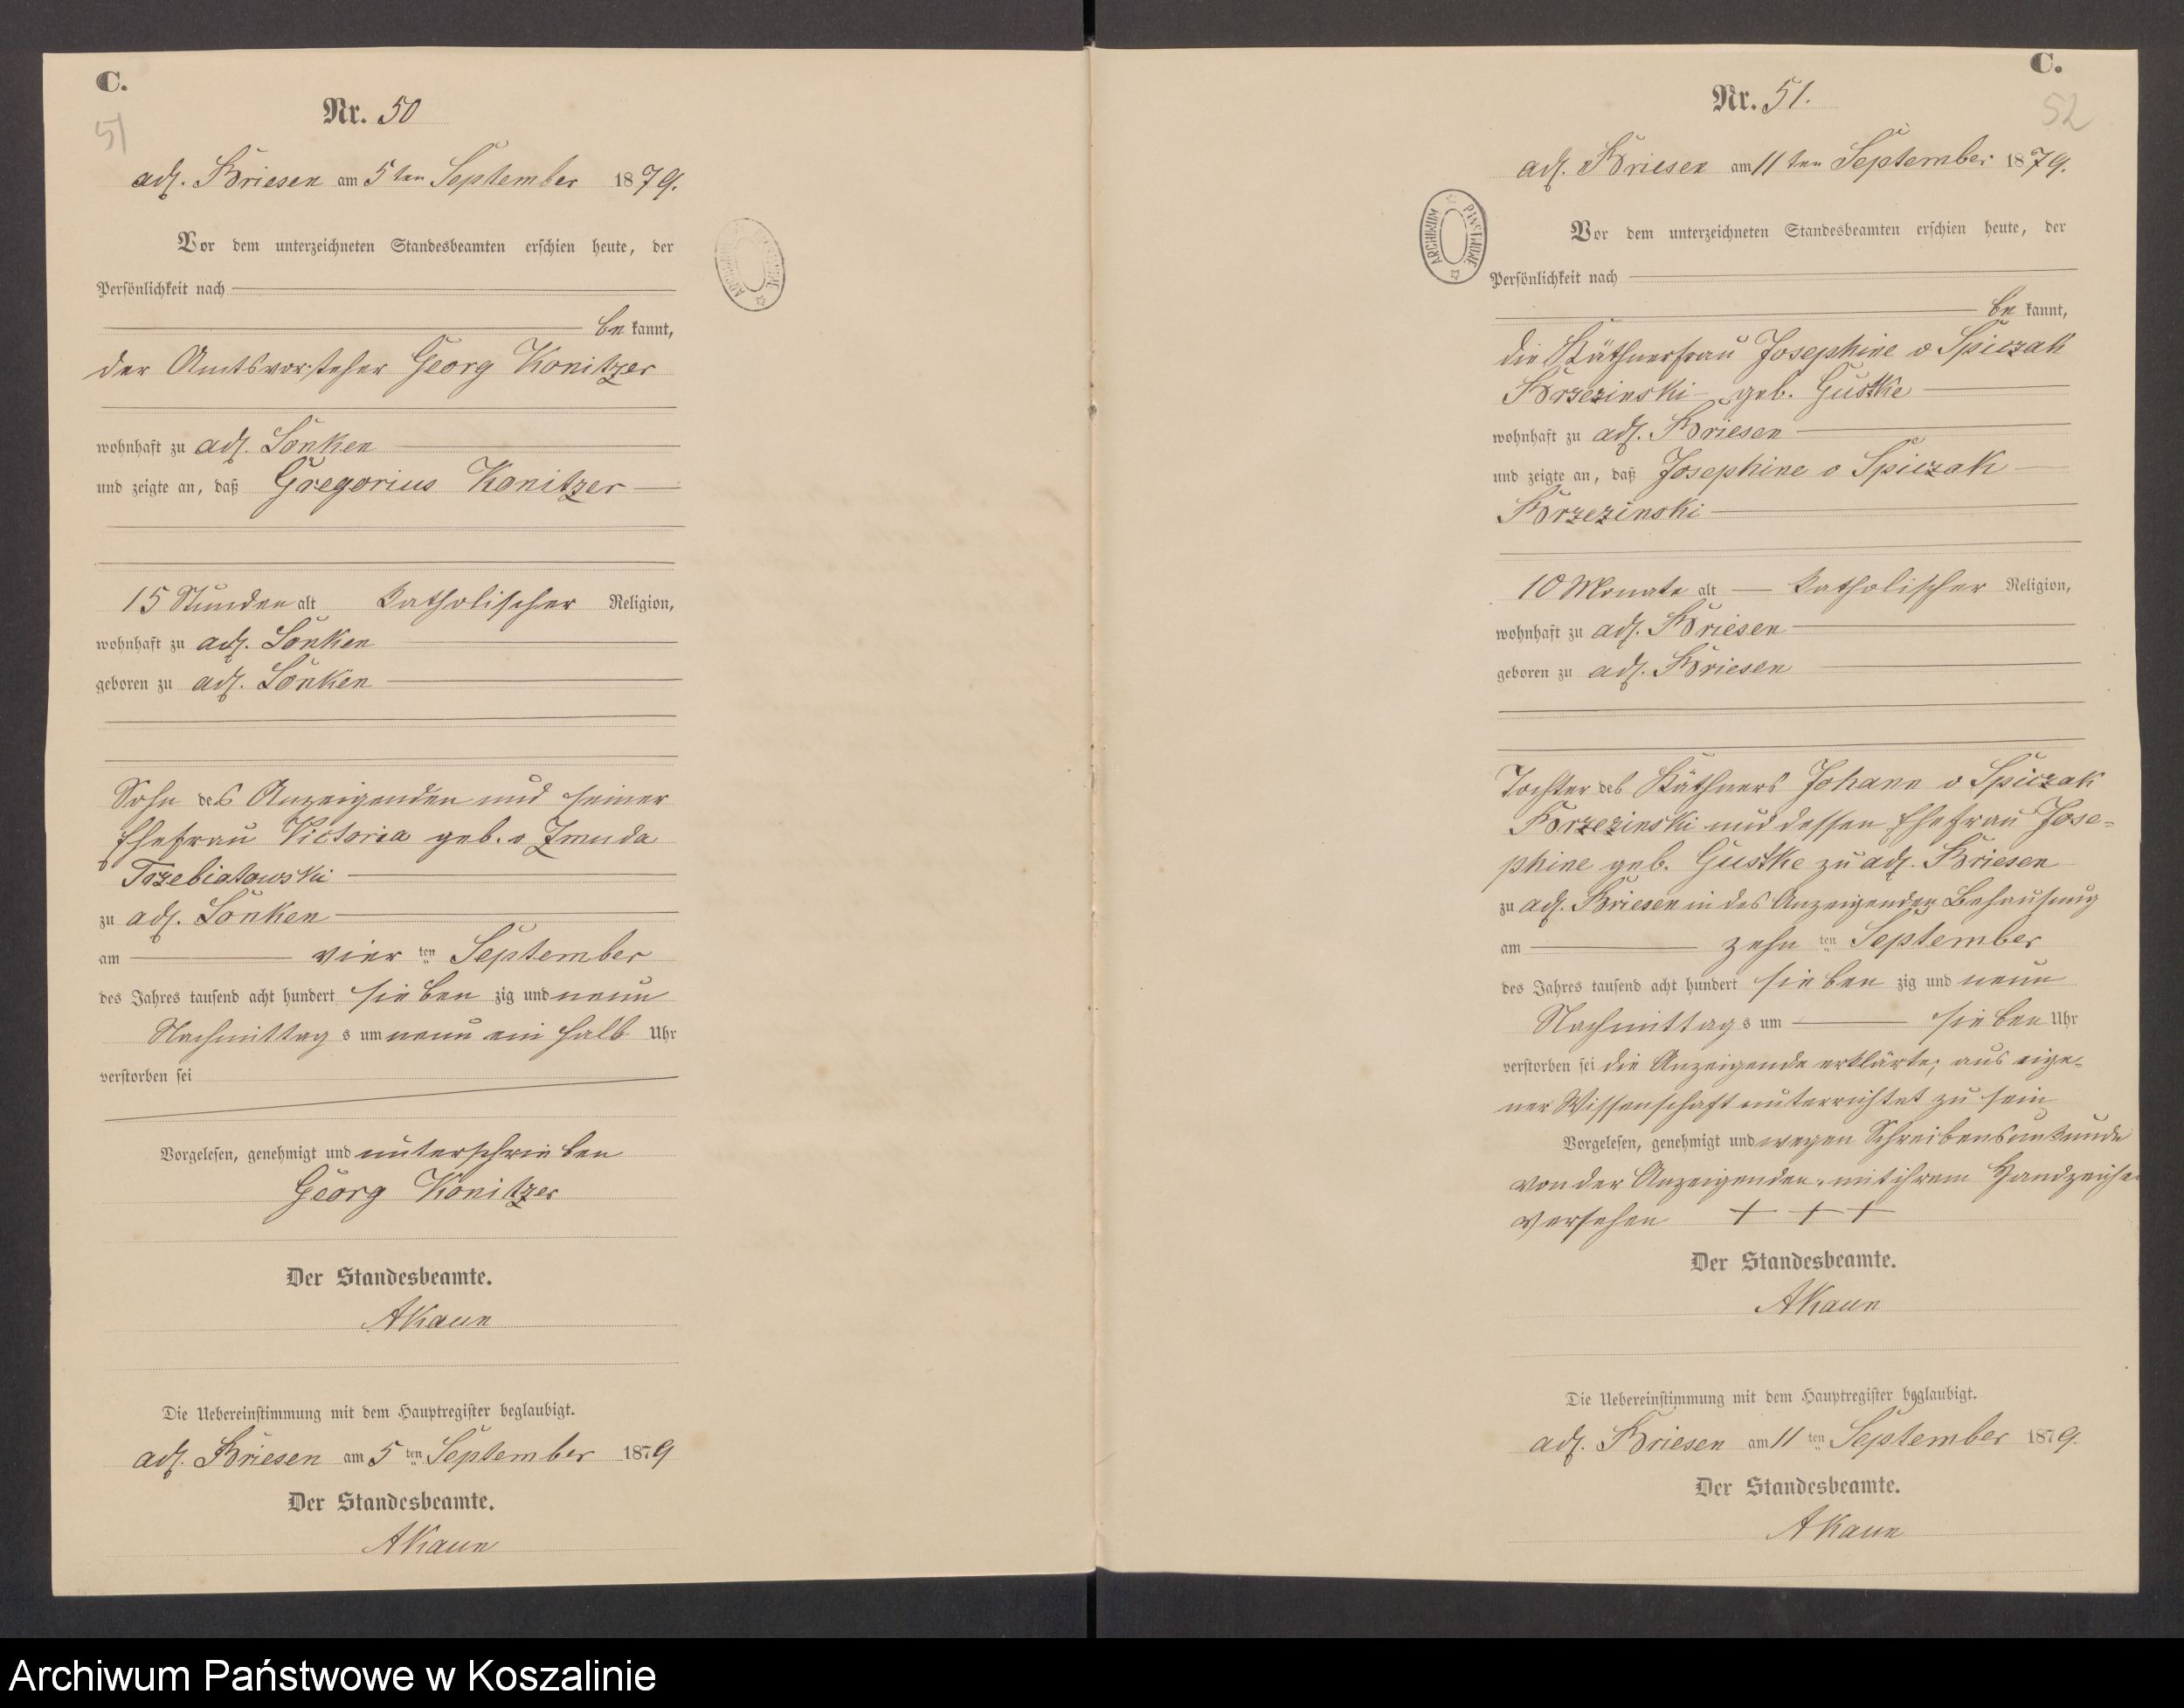 C.
51
Nr. 50
adl. Briesen am 5 ten September 1879.
Vor dem unterzeichneten Standesbeamten erschien heute, der
Persönlichkeit nach
be kannt,
der Amtsvorsteher Georg Konitzer
wohnhaft zu adl. Lonken
und zeigte an, daß Gregorius Konitzer
15 Stunden alt katholischer Religion,
wohnhaft zu adl. Lonken
geboren zu adl. Lonken
Sohn des Anzeigenden und seiner
Ehefrau Victoria geb. v Zmuda
Trzebiatowski
zu adl. Lonken
am vier ten September
des Jahres tausend acht hundert sieben zig und neun
Nachmittag s um neun ein halb Uhr
verstorben sei
Vorgelesen, genehmigt und unterschrieben
Georg Konitzer
Der Standesbeamte.
AKaun
Die Uebereinstimmung mit dem Hauptregister beglaubigt.
adl. Briesen am 5 ten September 1879
Der Standesbeamte.
AKaun
C.
52
Nr. 51.
adl. Briesen am 11 ten September 1879.
ARCHIWUM PAŃSTWOWE
Vor dem unterzeichneten Standesbeamten erschien heute, der
Persönlichkeit nach
be kannt,
die Käthnerfrau Josephine v Spiczak
Brzezinski geb. Gustke
wohnhaft zu adl. Briesen
und zeigte an, daß Josephine v Spiczak
Brzezinski
10 Monate alt katholischer Religion,
wohnhaft zu adl. Briesen
geboren zu adl. Briesen
Tochter des Käthners Johann v Spiczak
Brzezinski und dessen Ehefrau Jose-
phine geb. Gustke zu adl. Briesen
zu adl. Briesen in des Anzeigenden Behausung
am zehn ten September
des Jahres tausend acht hundert sieben zig und neun
Nachmittag s um sieben Uhr
verstorben sei die Anzeigende erklärte, aus eige-
ner Wissenschaft unterrichtet zu sein
Vorgelesen, genehmigt und wegen Schreibensunkunde
von der Anzeigenden, mit ihrem Handzeichen
versehen + + +
Der Standesbeamte.
AKaun
Die Uebereinstimmung mit dem Hauptregister beglaubigt.
adl. Briesen am 11 ten September 1879.
Der Standesbeamte.
AKaun
Archiwum Państwowe w Koszalinie